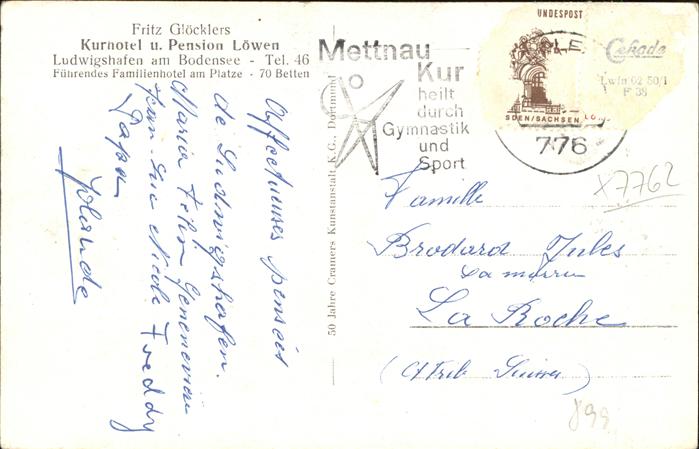 Fritz Glöcklers
Kurhotel u. Pension Löwen
Ludwigshafen am Bodensee - Tel. 46
Führendes Familienhotel am Platze · 70 Betten
Affectueuses pensées
de Ludwigshafen.
Maria Félix Genenevian
Jean-Luc Nicole Freddy
Papa
Yolande
50 Jahre Cramers Kunstanstalt K.G., Dortmund
Mettnau
Kur
heilt
durch
Gymnastik
und
Sport
UNDESPOST
SDEN/SACHSEN
776
Cekade
Lwin 02 50/1
F 38
X7762
Famille
Brodard Jules
La mairie
La Roche
(Ct Frib Suisse)